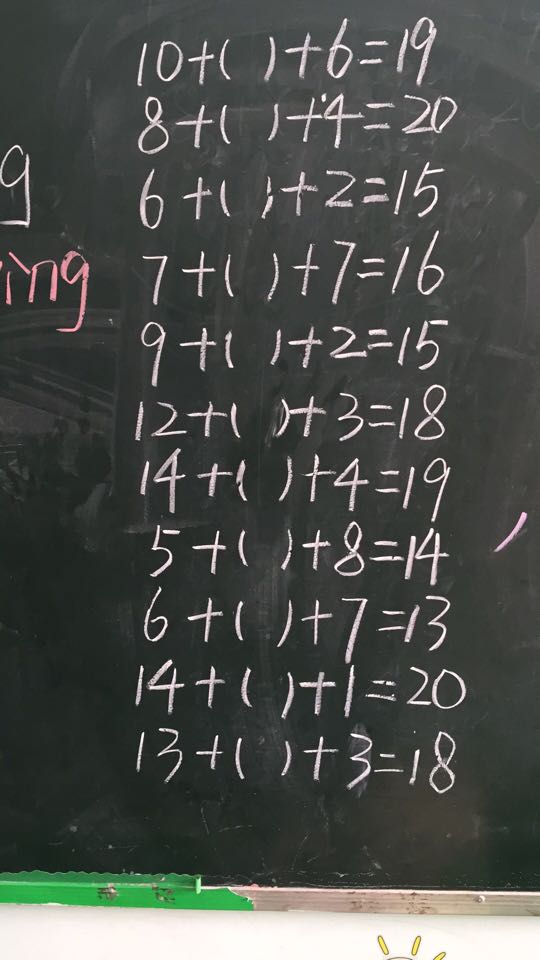 10+( )+6=19
8+( )+4=20
6+( )+2=15
g
7+( )+7=16
ing
9+( )+2=15
12+( )+3=18
14+( )+4=19
5+( )+8=14
6+( )+7=13
14+( )+1=20
13+( )+3=18